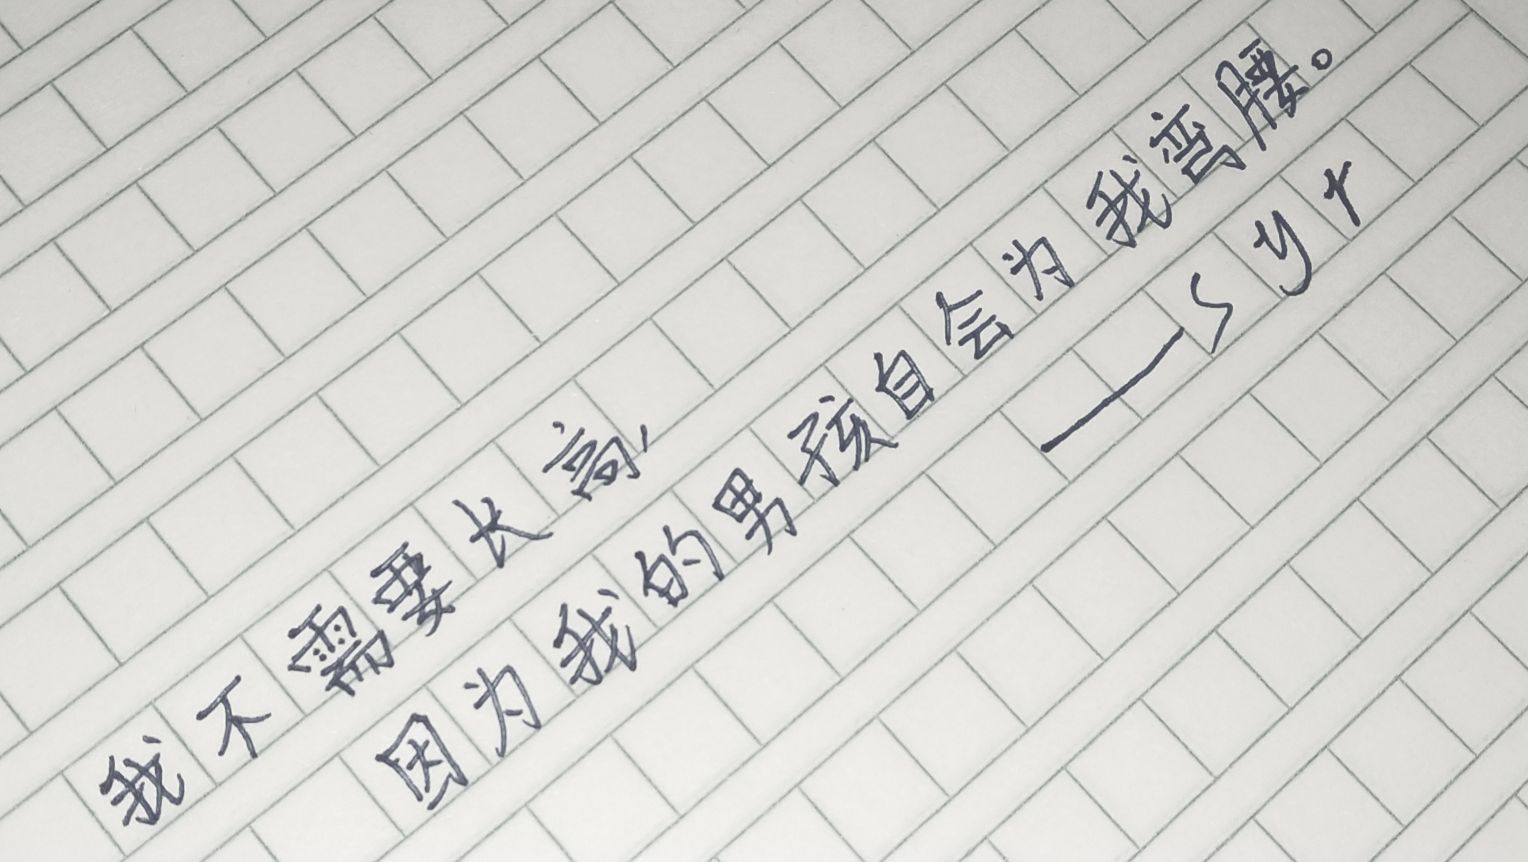 我不需要长高,
因为我的男孩自会为我弯腰。
——syr